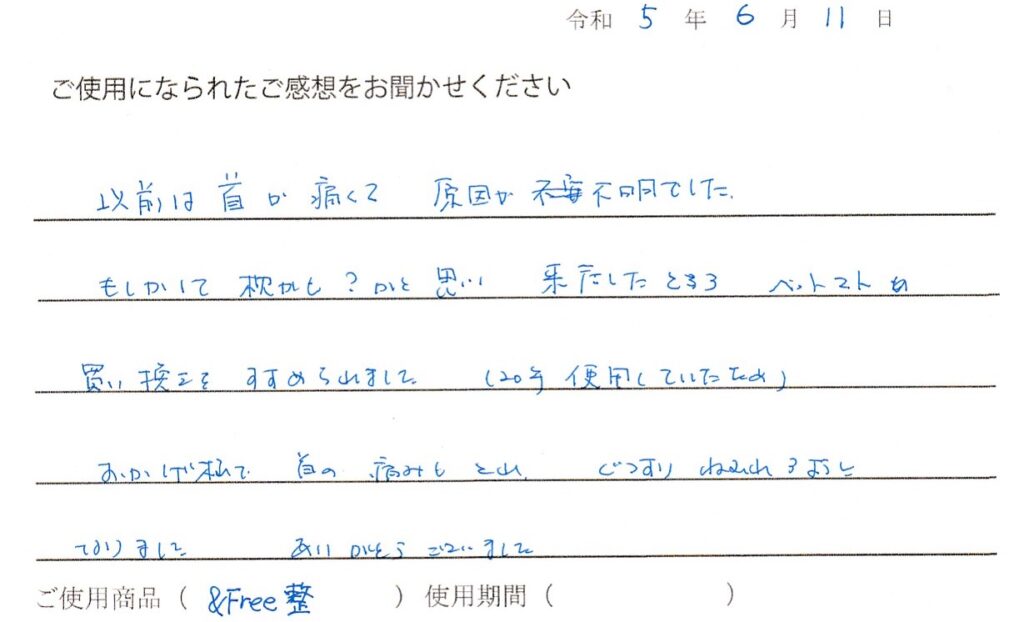 令和 5 年 6 月 11 日
ご使用になられたご感想をお聞かせください
以前は首が痛くて 原因が不明でした。
もしかして枕かも?かと思い 来店したところ ベットマットの
買い換えをすすめられました (20年使用していたため)
おかげ様で 首の痛みもとれ ぐっすりねむれるように
なりました ありがとうございました
ご使用商品 ( &Free 整 ) 使用期間 ( )